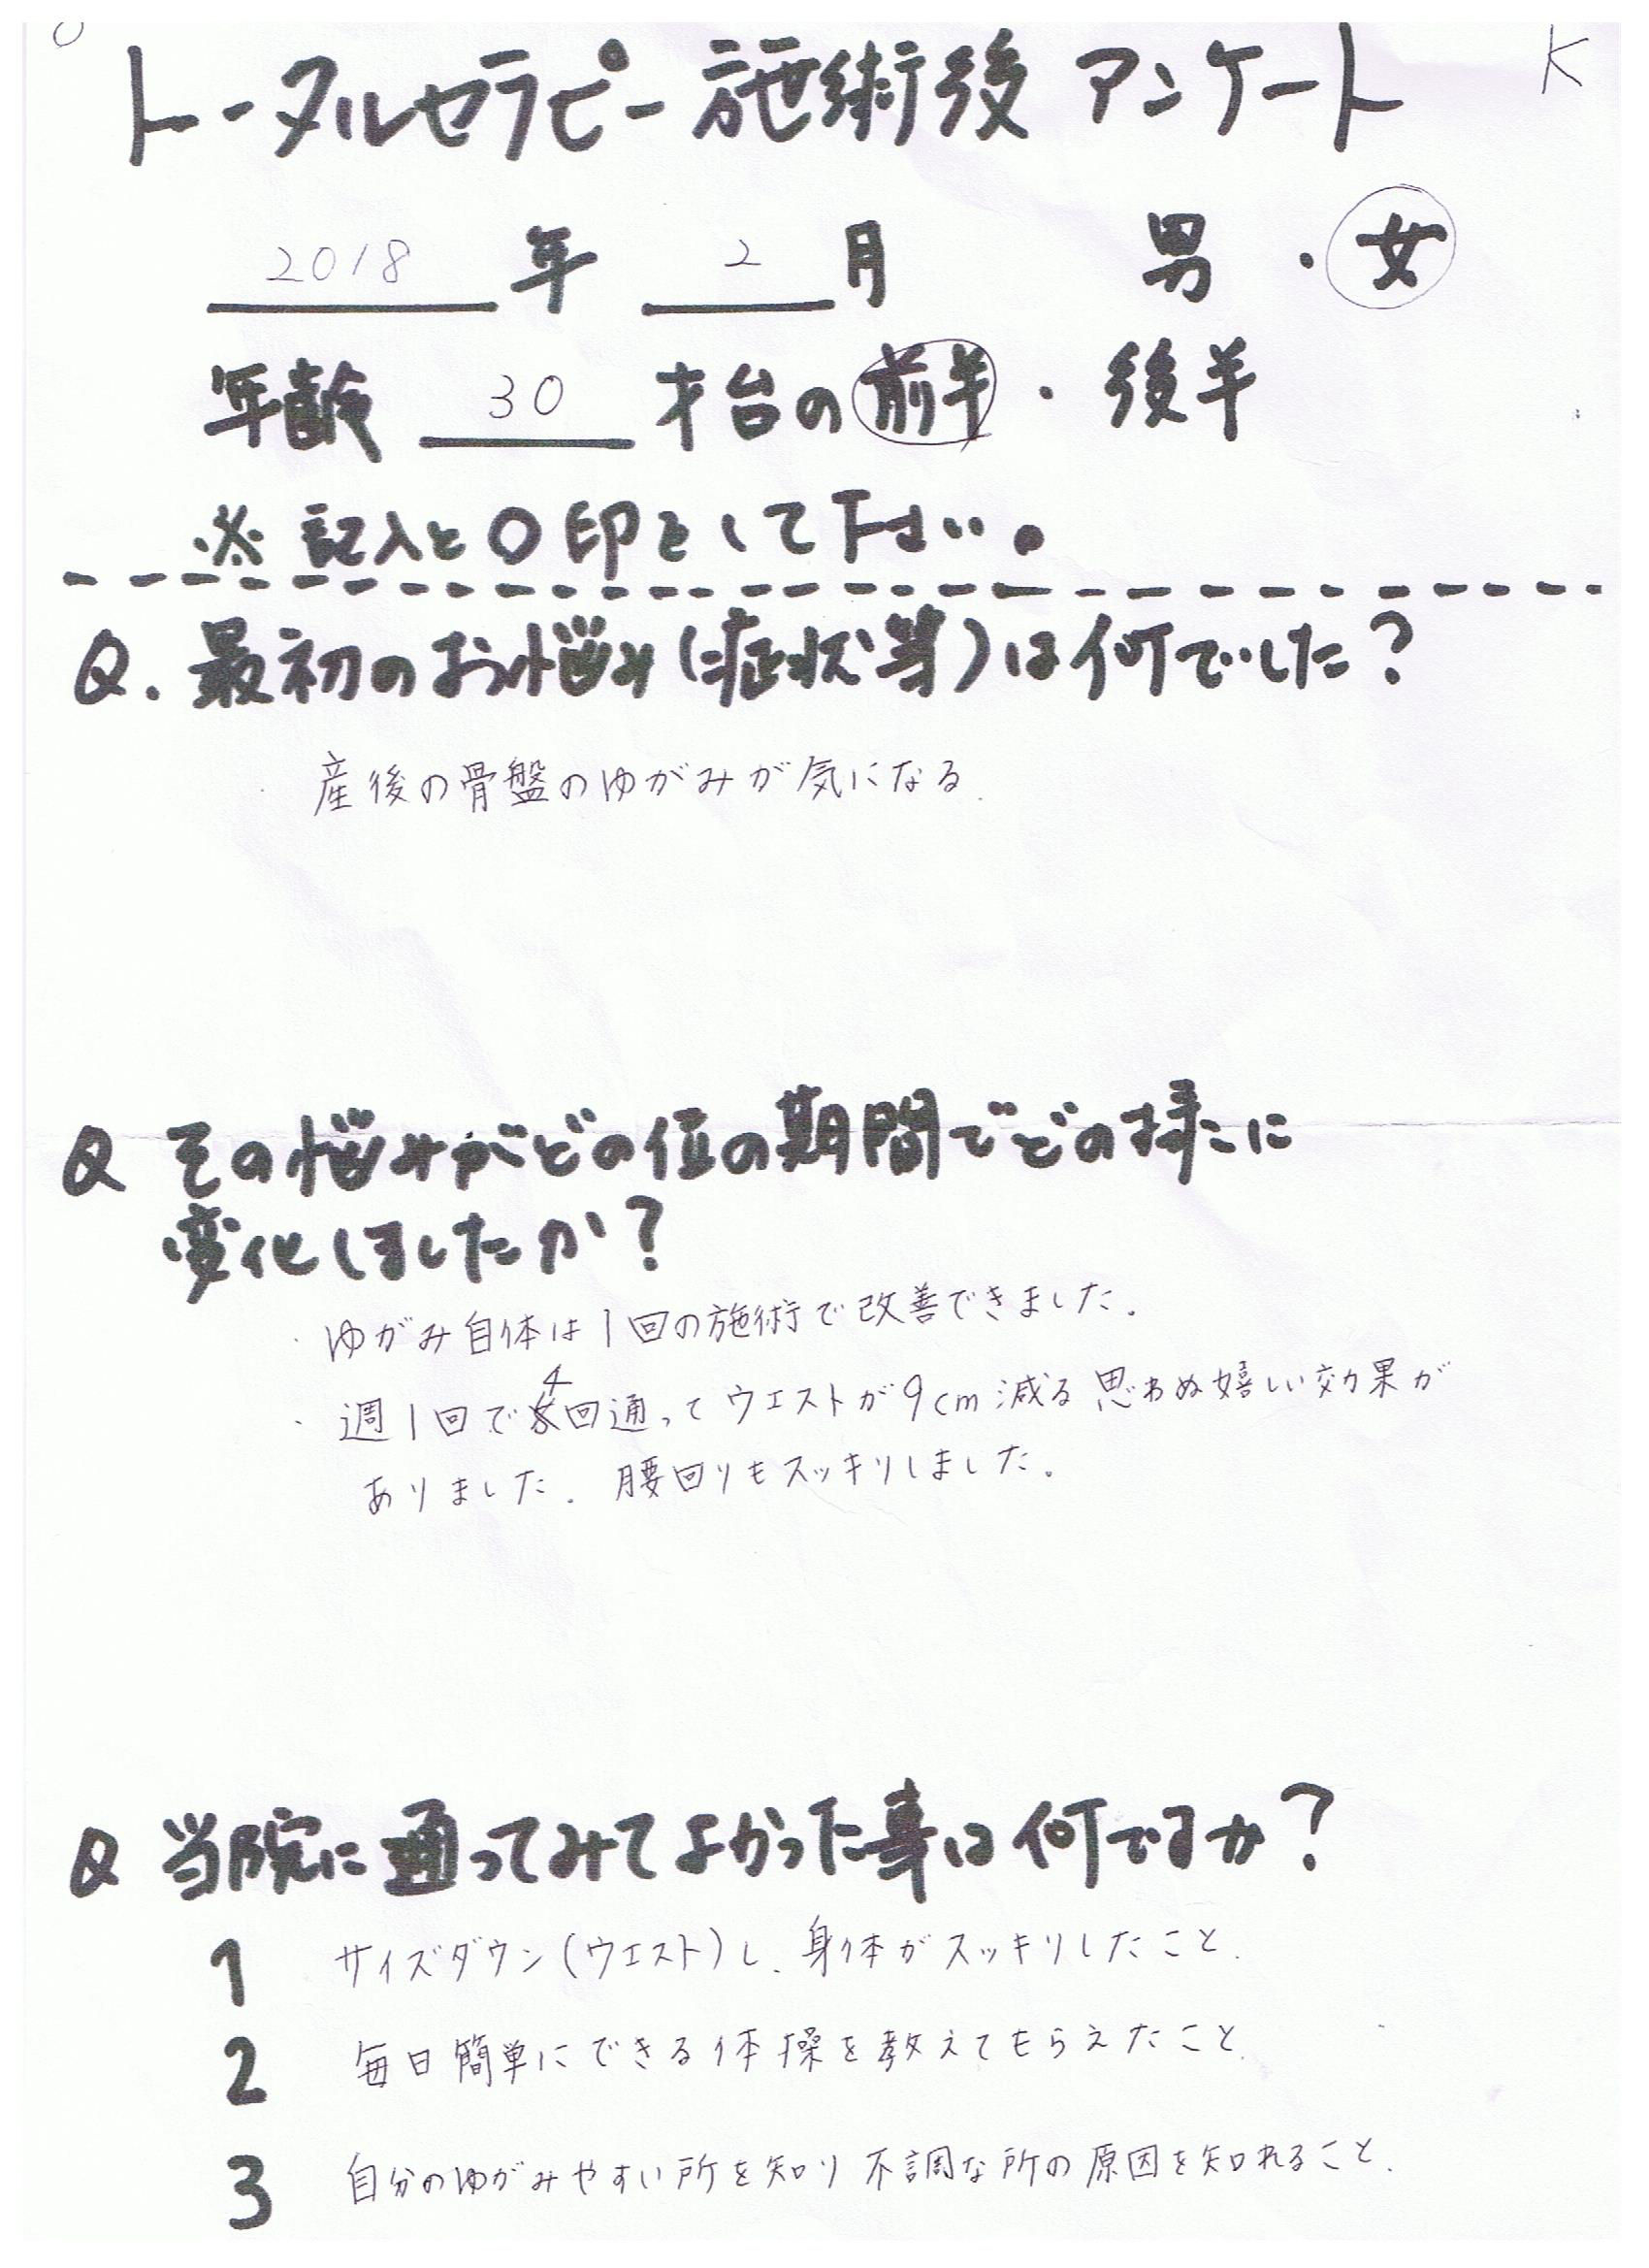 K
トータルセラピー施術後 アンケート
2018 年 2 月 男 ・ 女
年齢 30 才台の 前半 ・ 後半
※ 記入と〇印をして下さい。
Q. 最初のお悩み(症状等)は何でした?
産後の骨盤のゆがみが気になる.
Q その悩みがどの位の期間でどの様に
変化しましたか?
・ゆがみ自体は1回の施術で改善できました.
・週1回で4回通ってウエストが9cm減る思わぬ嬉しい効果が
ありました. 腰回りもスッキリしました.
Q 当院に通ってみてよかった事は何ですか?
1 サイズダウン(ウエスト)し、身体がスッキリしたこと.
2 毎日簡単にできる体操を教えてもらえたこと.
3 自分のゆがみやすい所を知り不調な所の原因を知れること.